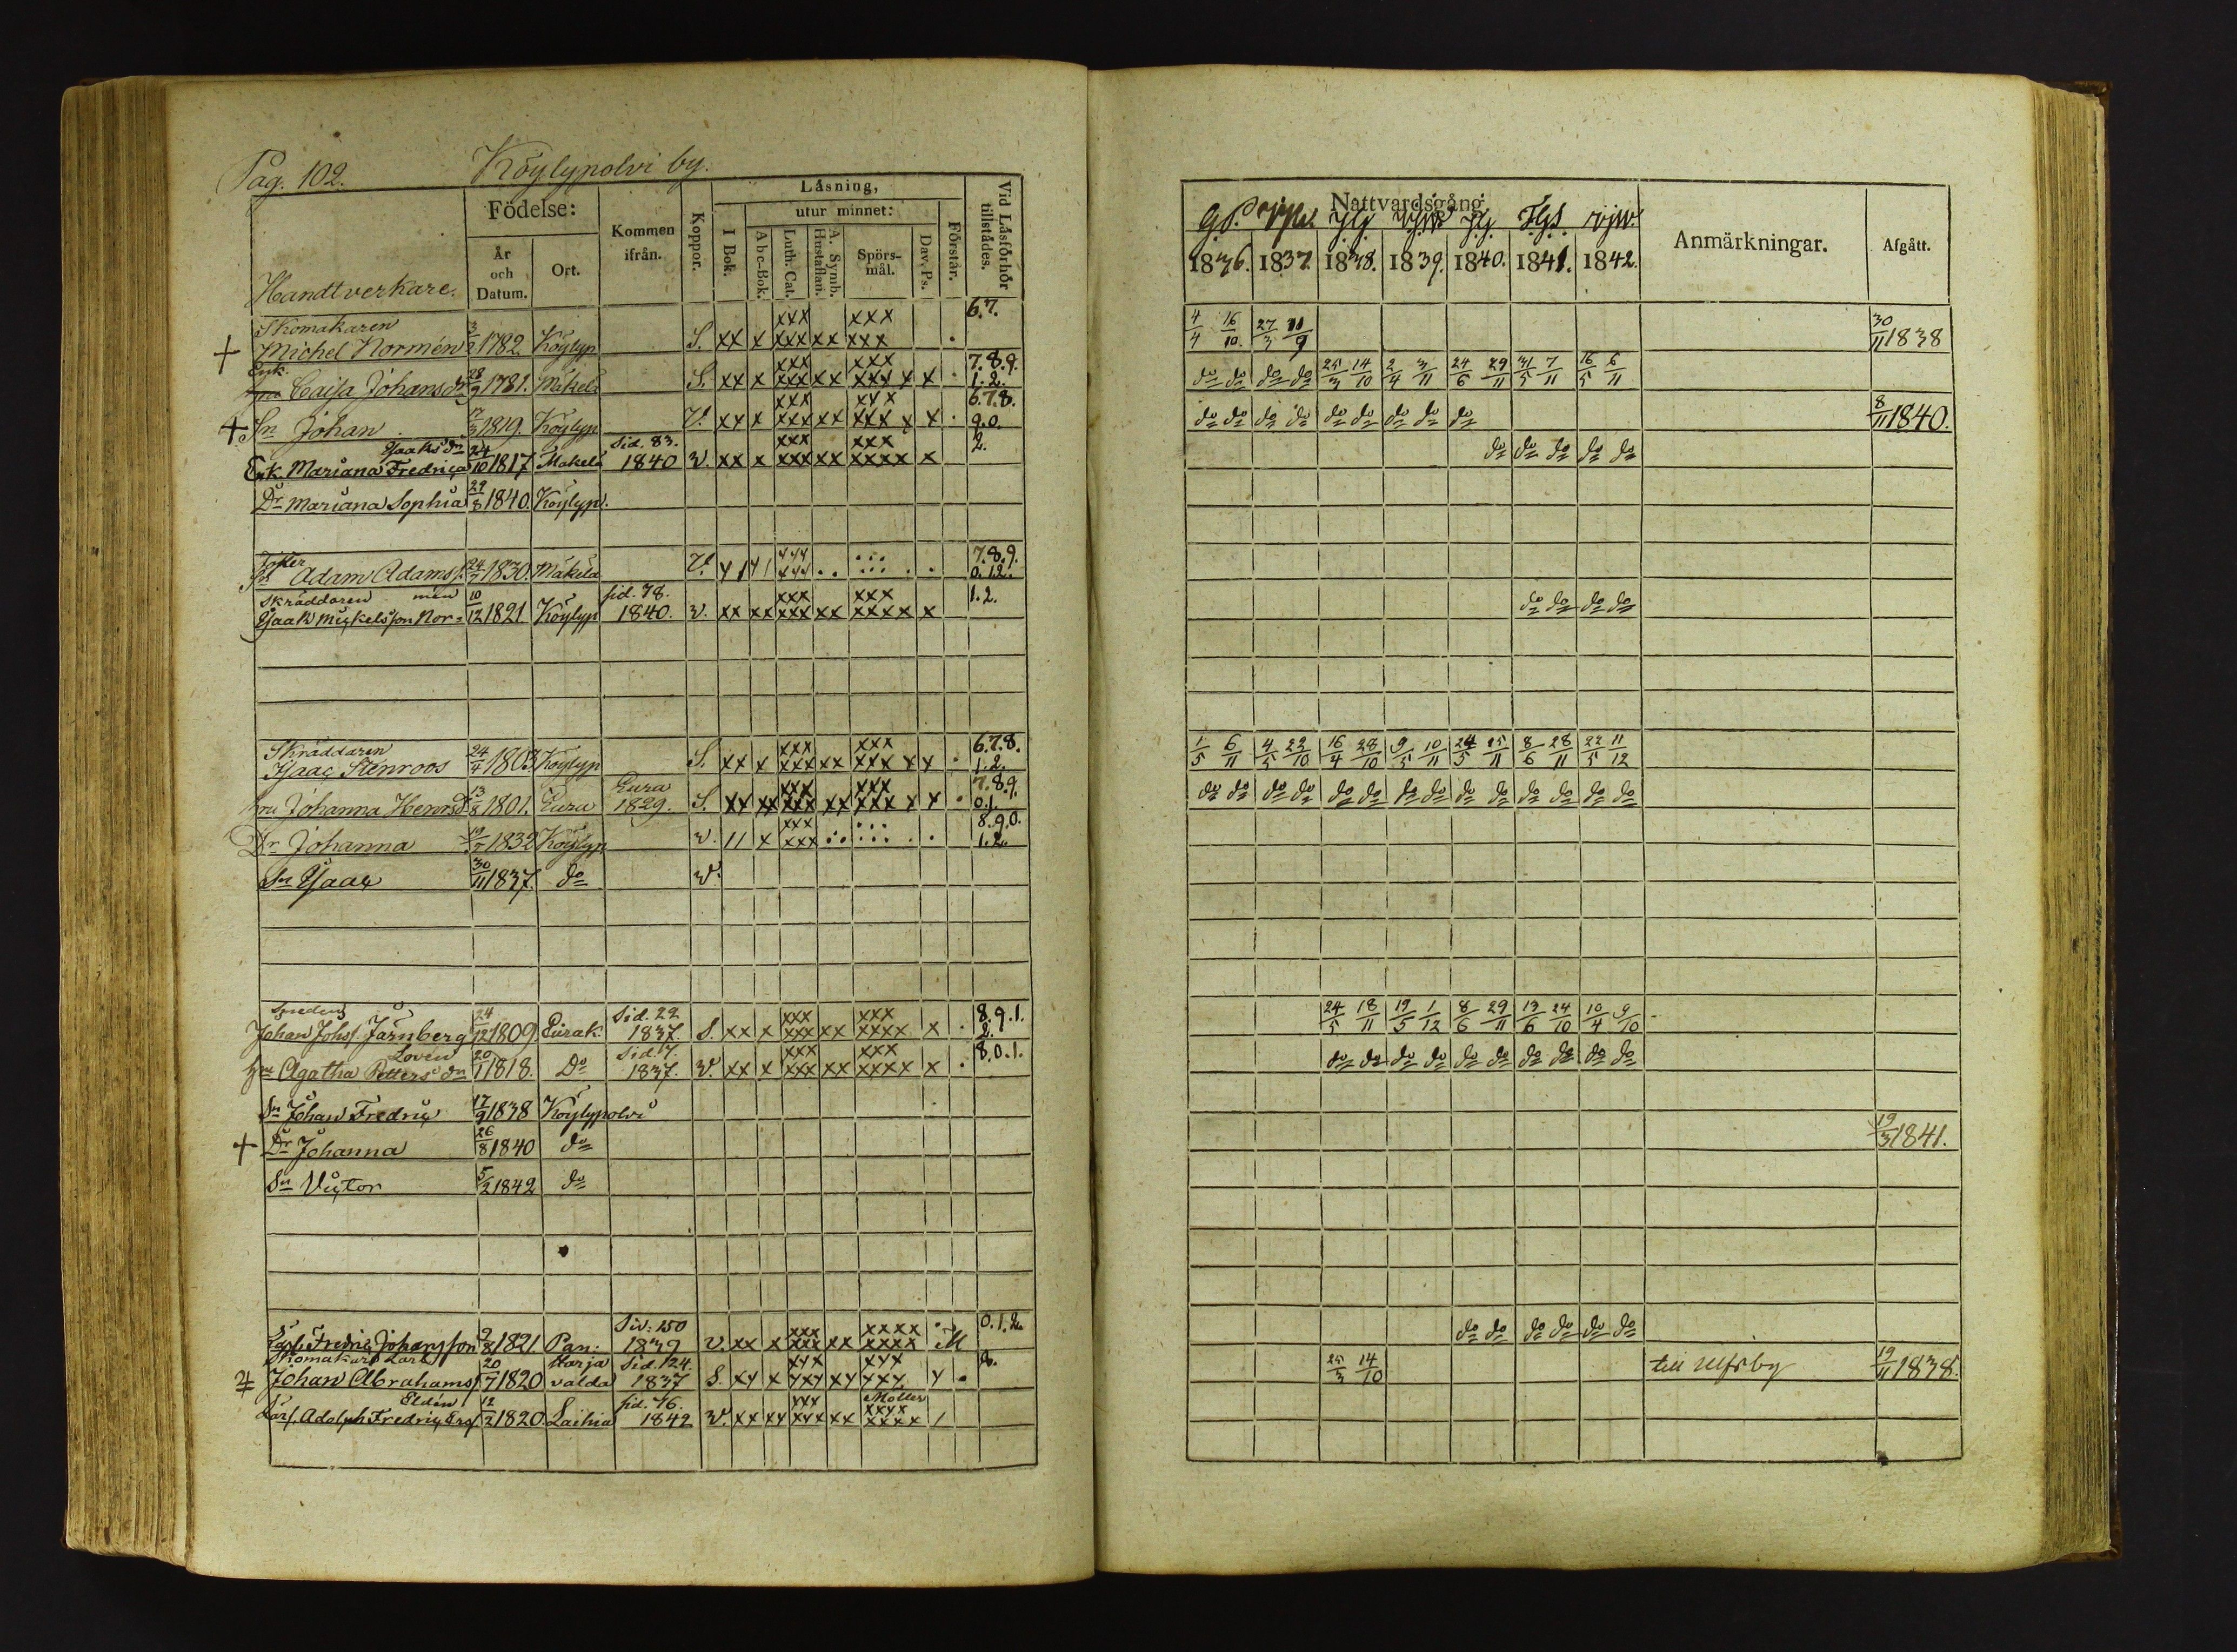 Pag. 102. Köylypolvi by.
Handtverkare.
Födelse:
År och Datum.
Ort.
Kommen ifrån.
Koppor.
Läsning,
I Bok.
utur minnet:
Abc-Bok.
Luth. Cat.
A. Symb. Hustaflan.
Spörsmål.
Dav. Ps.
Förstår.
Vid Läsförhör tillstädes.
Skomakaren 3 xxx xxx 6.7.
+ Michel Normén 1782. Köylyp S. xx x xxx xx xxx .
Enk. 28 xxx xxx 7.8.9.
Caisa Johansdr 9 1781. Mäkelä S. xx x xxx xx xxx x x . 1.2.
xxx xxx 6.7.8.
+ Sn Johan 1819. Köylyp V. xx x xxx xx xxx x x . 9.0.
Isaaks dr 24 Sid. 83. xxx xxx 2.
Enk. Mariana Fredrica 10 1817 Mäkelä 1840 v. xx x xxx xx xxxx x
Dr Mariana Sophia 29/8 1840. Köylyp.
24 7.8.9.
Sn Adam Adamss. 1830. Mäkelä V. 0.1.2.
Skräddaren men 10 sid. 78. xxx xxx 1.2.
Isaak Mickelsson Nor= 12 1821 Köylyp 1840. v. xx xx xxx xx xxxx x
Skräddaren 24 xxx xxx 6.7.8.
Isaac Stenroos 4 1803 Köylyp S. xx x xxx xx xxx x x . 1.2.
13 Eura xxx xxx 7.8.9.
Hru Johanna Henrsdr 8 1801. Eura 1829. S. xx xx xxx xx xxx x x . 0.1.
xxx 8.9.0.
Dr Johanna 1832 Köylyp v. 11 x xxx 1.2.
Sn Isaac 30/11 1837. do v.
24 Sid. 22 xxx xxx 8.9.1.
Johan Johss. Järnberg 12 1809. Eurak. 1837. S. xx x xxx xx xxxx x . 2.
Lovén 20 Sid. 17. xxx xxx 8.0.1.
Hru Agatha Petters dr 1 1818. Do 1837. v. xx x xxx xx xxxx x .
Sn Johan Fredric 17/9 1838 Köylypolvi
+ Dr Johanna 26/8 1840 do
Sn Victor 5/2 1842 do
Sid. 150 xxx xxxx 0.1.2.
Fredric Johansson 1821 Pan. 1839 v. xx x xxx xx xxxx
Skomakare Lärl. 20 Harja Sid. 124. xxx xxx
Johan Abrahamss. 7 1820 valda 1837 S. xx x xxx xx xxx x .
Eldén 12 sid. 76. xxx Möller
Lärl. Adolph Fredric 2 1820. Laihia 1842 v. xx xx xxx xx xxxx 1
Nattvardsgång
Anmärkningar.
Afgått.
1836. 1837. 1838. 1839. 1840. 1841. 1842.
4/4 16/10. 27/3 11/9 30/11 1838
do do do do 25/3 14/10 2/4 3/11 24/6 29/11 31/5 7/11 16/5 6/11
do do do do do do do do do 8/11 1840.
do do do do do
do do do do
1/5 6/11 4/5 22/10 16/4 28/10 9/5 10/11 24/5 25/11 8/6 28/11 22/5 11/12
do do do do do do do do do do do do do do
24/5 18/11 19/5 1/12 8/6 29/11 13/6 24/10 10/4 9/10
do do do do do do do do do do
19/3 1841.
do do do do do do
25/3 14/10 till Ulfsby 19/11 1838.